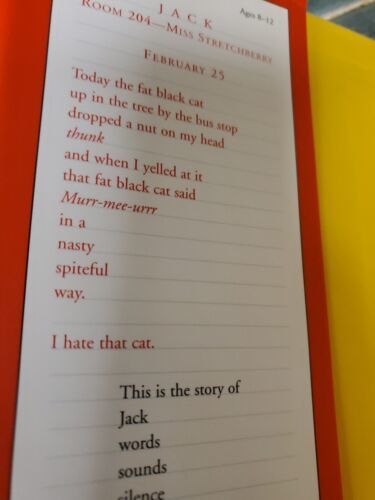 Ages 8–12
JACK
ROOM 204—MISS STRETCHBERRY
FEBRUARY 25
Today the fat black cat
up in the tree by the bus stop
dropped a nut on my head
thunk
and when I yelled at it
that fat black cat said
Murr-mee-urrr
in a
nasty
spiteful
way.
I hate that cat.
This is the story of
Jack
words
sounds
silence